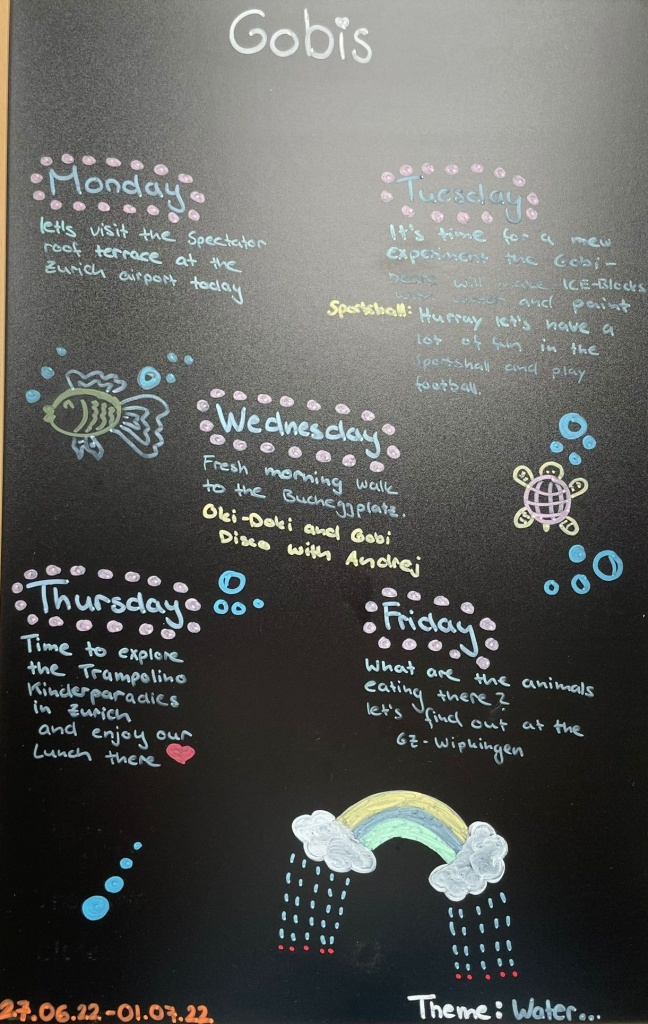 Gobis
Monday
let's visit the Spectator
roof terrace at the
Zurich airport today
Tuesday
It's time for a new
experiment the Gobi-
Bears will make ICE-Blocks
with water and paint
Sportshall: Hurray let's have a
lot of fun in the
Sportshall and play
football.
Wednesday
Fresh morning walk
to the Bucheggplatz.
Oki-Doki and Gobi
Disco with Andrej
Thursday
Time to explore
the Trampolino
Kinderparadies
in Zurich
and enjoy our
Lunch there
Friday
What are the animals
eating there?
let's find out at the
GZ-Wipkingen
27.06.22-01.07.22
Theme: Water...